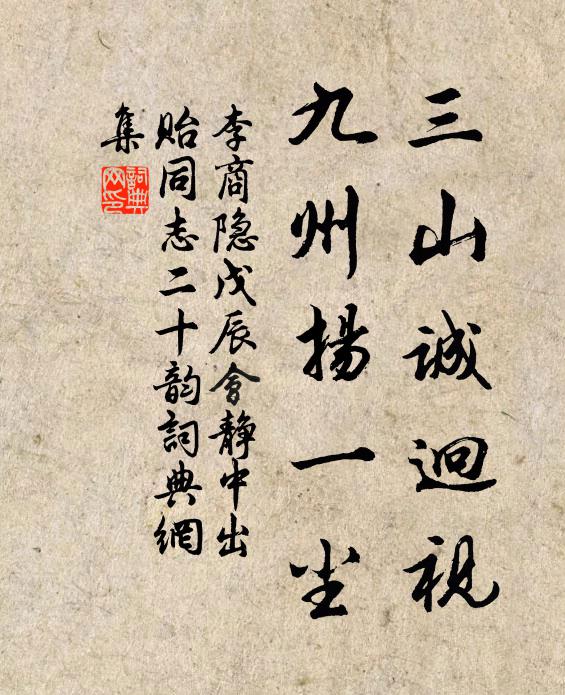 三山誠迴視
九州揚一尘
李商隐戊辰會静中出
貽同志二十韵詞典網
集
詞典
网印